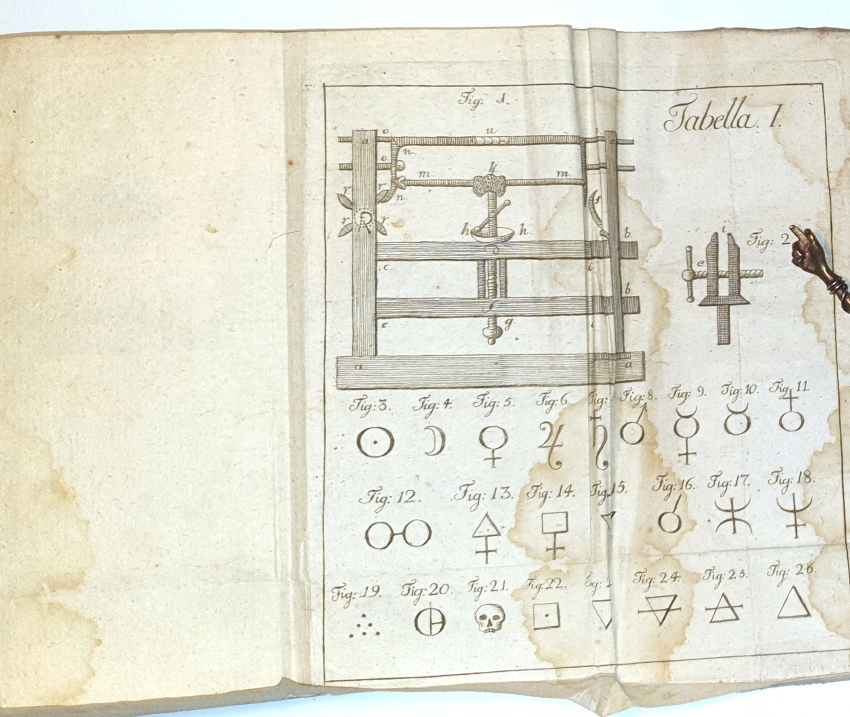 Fig. 1.
Tabella. I.
o u
a n.
o
m k m
r r n f
r r
h h
b.
Fig: 2
i
e
c. i
b
f
e g i
a a
Fig: 3. Fig: 4. Fig: 5. Fig: 6. Fig: Fig: 8. Fig: 9. Fig: 10. Fig: 11.
Fig: 12. Fig: 13. Fig: 14. Fig: 15. Fig: 16. Fig: 17. Fig: 18.
Fig: 19. Fig: 20. Fig: 21. Fig: 22. Fig: 24. Fig: 25. Fig: 26.